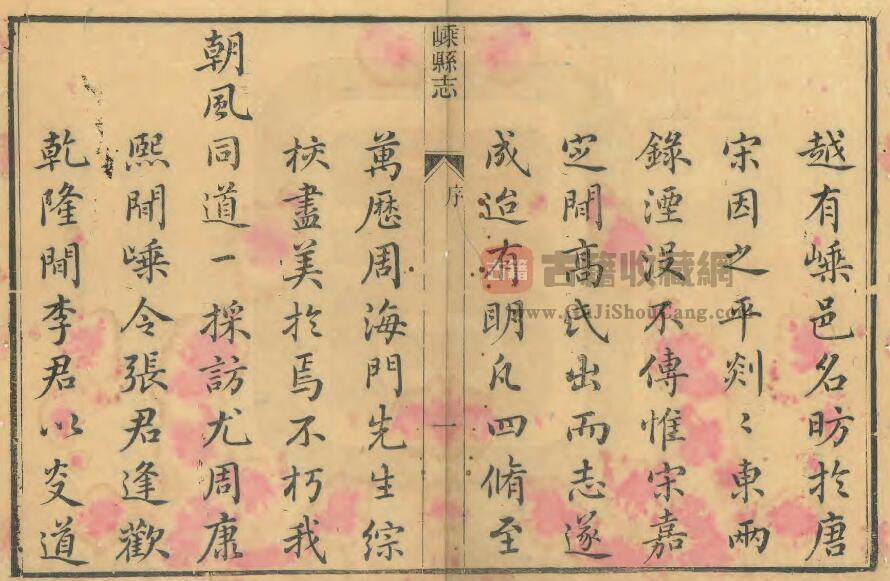 越有嵊邑名昉扵唐
宋因之平剡〻東兩
錄湮没不傳惟宋嘉
㝎間髙氏出而志遂
成迨有明凡四脩至
嵊縣志
序
一
萬歷周海門先生綜
核盡美扵焉不朽我
朝風同道一採訪尤周康
熙間嵊令張君逢歡
乾隆間李君以炎道
古籍
古籍收藏網
www.GuJiShouCang.com